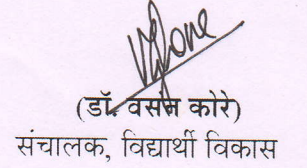 (डॉ. वसंत कोरे)
संचालक, विद्यार्थी विकास